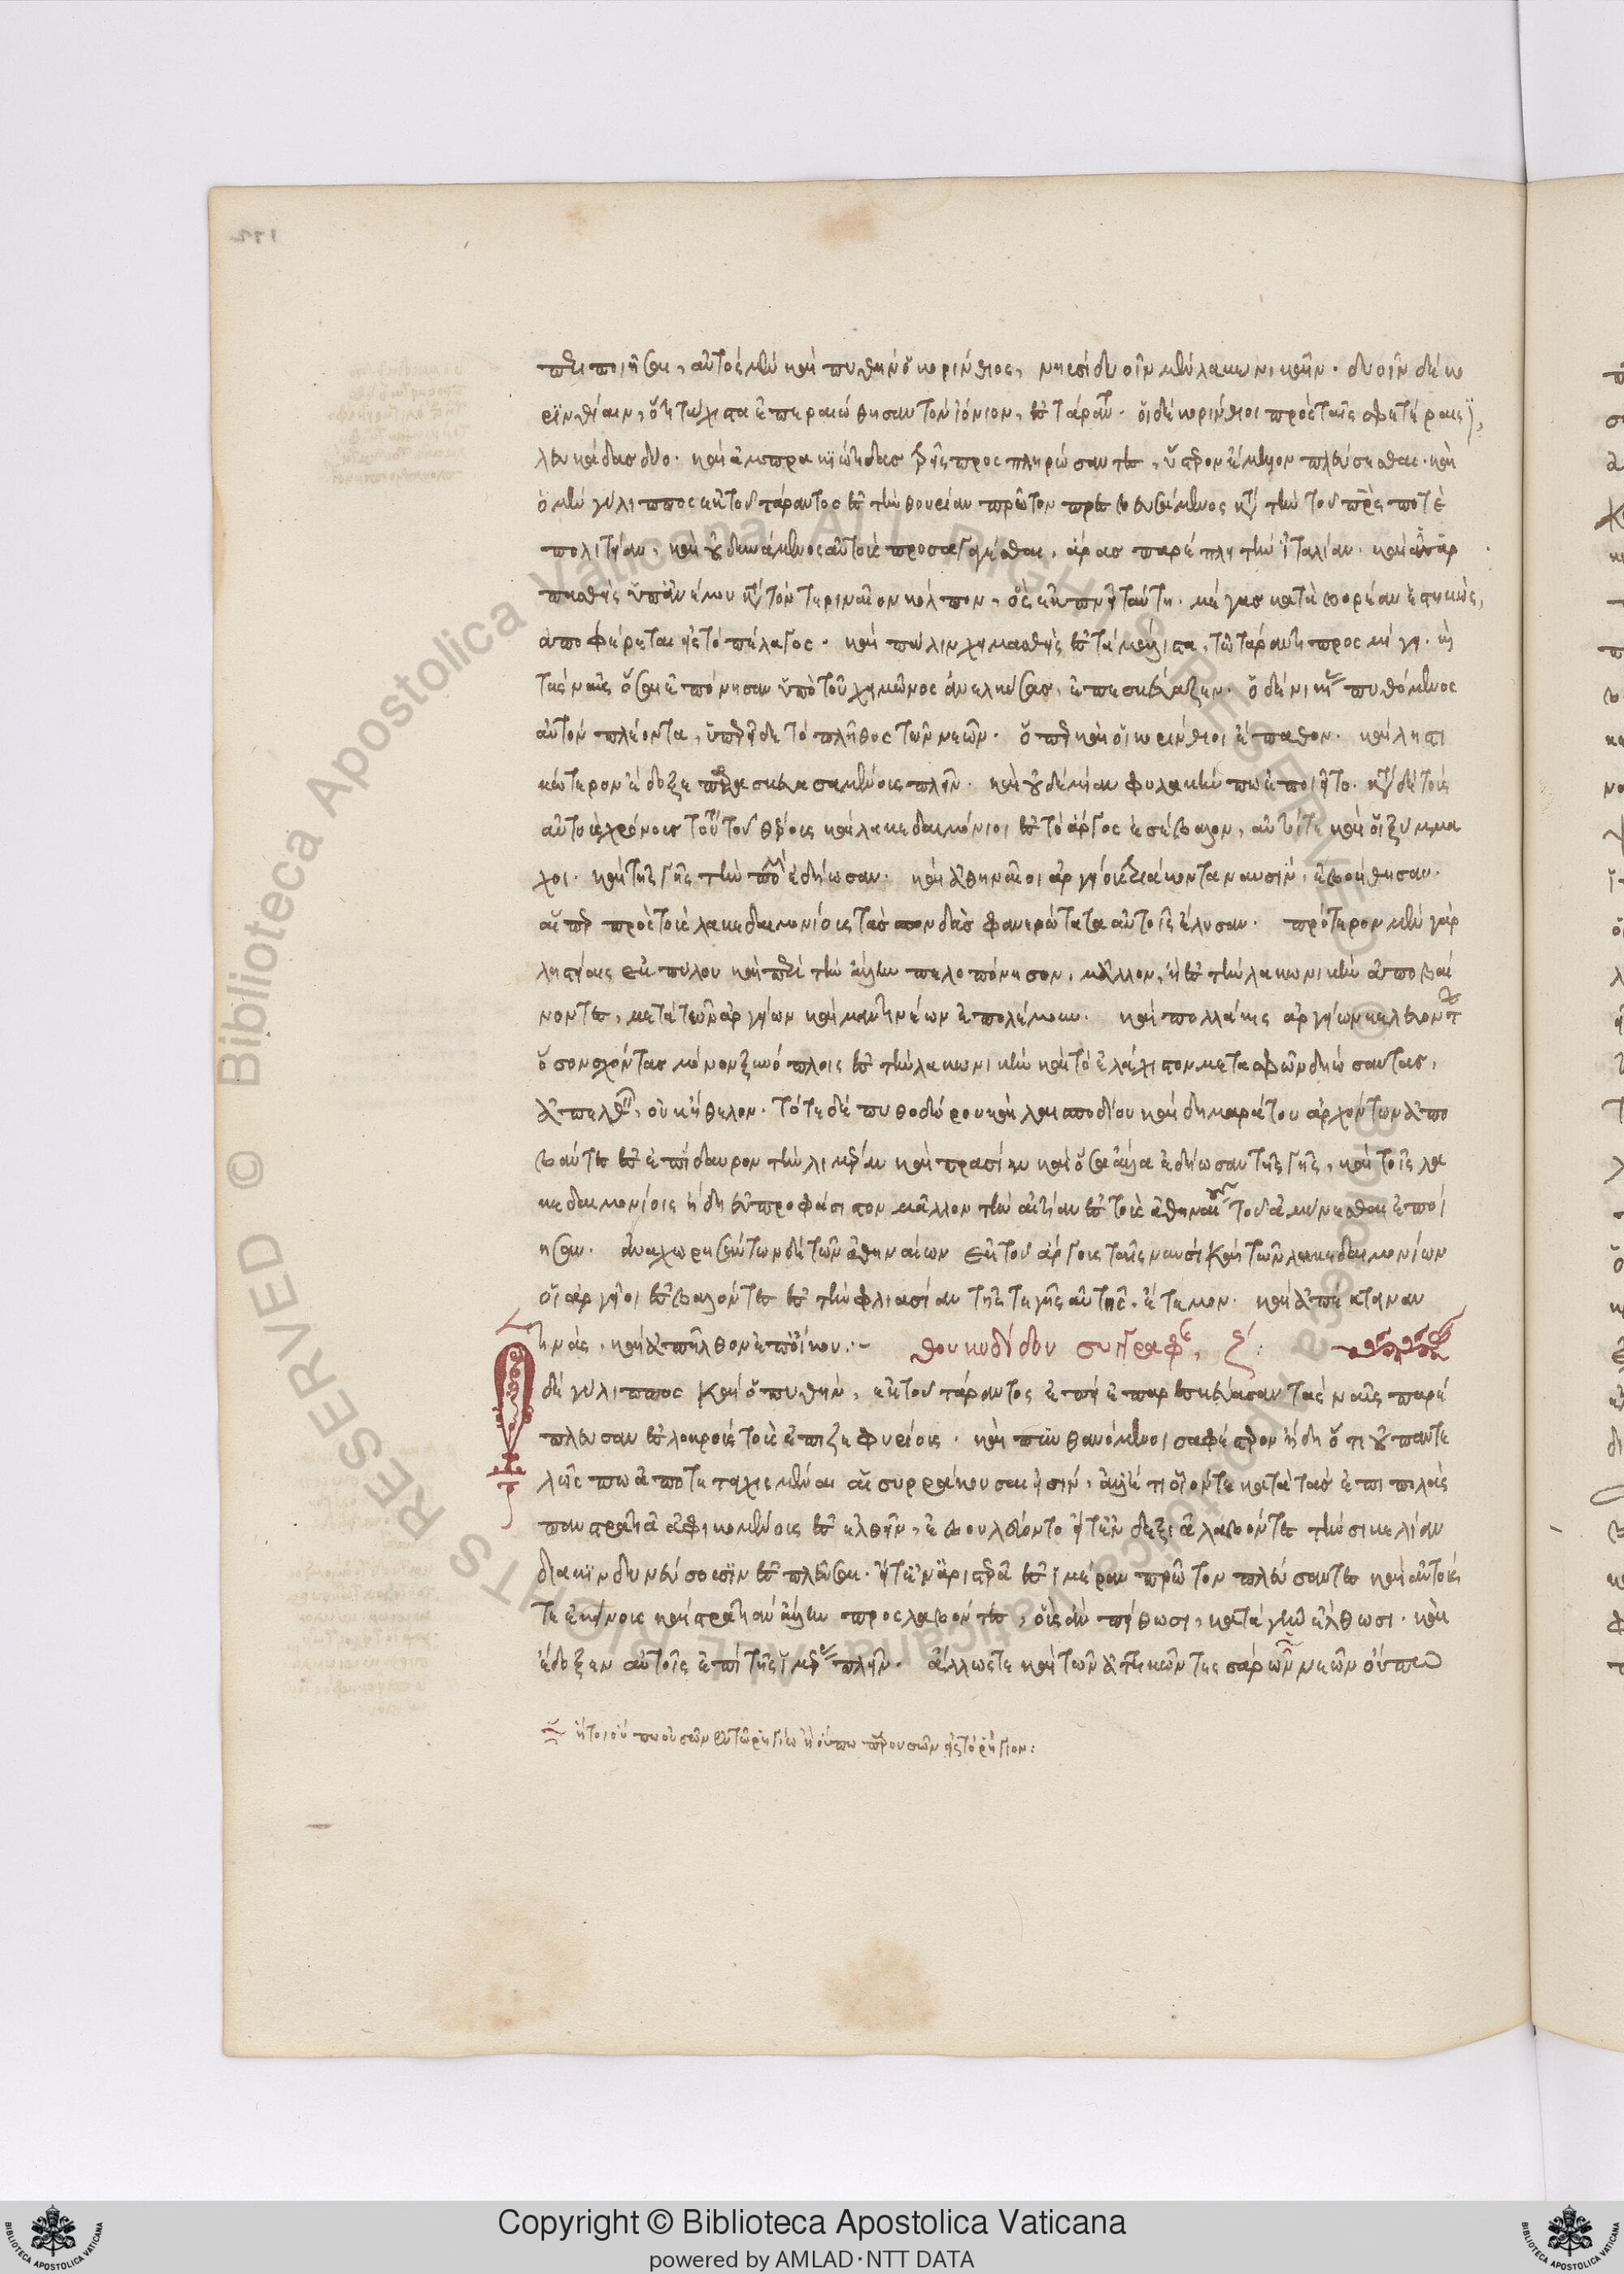 περιποιῆσαι, αὐτὸς μὲν καὶ πυθὴν ὁ κορίνθιος, νηυσὶ δυοῖν μὲν λακωνικαῖν. δυοῖν δὲ κο
ρινθίαιν, ὅτι τάχιστα ἐπεραιώθησαν τὸν ἰόνιον, ἐς τάραντα. οἱ δὲ κορίνθιοι πρὸς ταῖς σφετέραις ι,
λευκάδας δύο. καὶ ἀμπρακιώτιδας τρεῖς προσπληρώσαντες, ὕστερον ἔμελλον πλεύσεσθαι. καὶ
ὁ μὲν γύλιππος ἐκ τοῦ τάραντος ἐς τὴν θουρίαν πρῶτον πρεσβευσάμενος κατὰ τὴν τοῦ πατρός ποτὲ
πολιτείαν, καὶ οὐ δυνάμενος αὐτοὺς προσαγαγέσθαι, ἄρας παρέπλει τὴν ἰταλίαν. καὶ ἁρ
πασθεὶς ὑπ' ἀνέμου κατὰ τὸν τεριναῖον κόλπον, ὃς ἐκπνεῖ ταύτῃ. μέγας κατὰ βορέαν ἑστηκὼς,
ἀποφέρεται εἰς τὸ πέλαγος. καὶ πάλιν χειμασθεὶς ἐς τὰ μάλιστα, τῷ τάραντι προσμίγει. καὶ
τὰς ναῦς ὅσαι ἐπόνησαν ὑπὸ τοῦ χειμῶνος ἀνελκύσας, ἐπεσκεύαζεν. ὁ δὲ νικίας πυθόμενος
αὐτὸν πλέοντα, ὑπερεῖδε τὸ πλῆθος τῶν νεῶν. ὅπερ καὶ οἱ θούριοι ἔπαθον. καὶ λῃστι
κώτερον ἔδοξε παρεσκευασμένους πλεῖν. καὶ οὐδεμίαν φυλακήν πω ἐποιεῖτο. κατὰ δὲ τοὺς
αὐτοὺς χρόνους τούτου τοῦ θέρους καὶ λακεδαιμόνιοι ἐς τὸ ἄργος ἐσέβαλον, αὐτοί τε καὶ οἱ ξύμμα
χοι. καὶ τῆς γῆς τὴν πολλὴν ἐδῄωσαν. καὶ ἀθηναῖοι ἀργείοις τριάκοντα ναυσὶν, ἐβοήθησαν.
αἵπερ πρὸς τοὺς λακεδαιμονίους τὰς σπονδὰς φανερώτατα αὐτοῖς ἔλυσαν. πρότερον μὲν γὰρ
λῃστείαις ἐκ πύλου καὶ περὶ τὴν ἄλλην πελοπόνησον, μᾶλλον, ἢ ἐς τὴν λακωνικὴν ἀποβαί
νοντες, μετά τε τῶν ἀργείων καὶ μαντινέων ἐπολέμουν. καὶ πολλάκις ἀργείων κελευόντων
ὅσον σχόντας μόνον ξὺν ὅπλοις ἐς τὴν λακωνικὴν καὶ τὸ ἐλάχιστον μετὰ σφῶν δῃώσαντας,
ἀπελθεῖν, οὐκ ἤθελον. τότε δὲ πυθοδώρου καὶ λαισποδίου καὶ δημαράτου ἀρχόντων ἀπο
βάντες ἐς ἐπίδαυρον τὴν λιμηρὰν καὶ πρασίαν καὶ ὅσα ἄλλα ἐδῄωσαν τῆς γῆς, καὶ τοῖς λα
κεδαιμονίοις ἤδη εὐπροφάσιστον μᾶλλον τὴν αἰτίαν ἐς τοὺς ἀθηναίους τοῦ ἀμύνεσθαι ἐποί
ησαν. ἀναχωρησάντων δὲ τῶν ἀθηναίων ἐκ τοῦ ἄργους ταῖς ναυσὶ καὶ τῶν λακεδαιμονίων
οἱ ἀργεῖοι ἐσβαλόντες ἐς τὴν φλιασίαν τῆς τε γῆς αὐτῆς. ἔτεμον. καὶ ἀπέκτειναν
τινὰς, καὶ ἀπῆλθον ἐπ' οἴκου:- θουκυδίδου συγγραφῆς, ζ´:
Ὁ δὲ γύλιππος καὶ ὁ πυθὴν, ἐκ τοῦ τάραντος ἐπεὶ ἐπαρεσκεύασαν τὰς ναῦς παρέ
πλευσαν ἐς λοκροὺς τοὺς ἐπιζεφυρίους. καὶ πυνθανόμενοι σαφέστερον ἤδη ὅτι οὐ παντε
λῶς πω ἀποτετειχισμέναι αἱ συρράκουσαι εἰσὶν, ἀλλ' ἔτι οἷόν τε κατὰ τὰς ἐπιπολὰς
πανστρατιᾷ ἀφικομένους ἐς ελθεῖν, ἐβουλεύοντο εἴτ' ἐν δεξιᾷ λαβόντες τὴν σικελίαν
διακινδυνεύσωσιν ἐς πλεῦσαι. εἴτ' ἐν ἀριστερᾷ ἐς ἱμέραν πρῶτον πλεύσαντες καὶ αὐτούς
τε ἐκείνους καὶ στρατιὰν ἄλλην προσλαβόντες, οὓς ἂν πείθωσι, κατὰ γῆν ἔλθωσι. καὶ
ἔδοξεν αὐτοῖς ἐπὶ τῆς ἱμέρας πλεῖν. ἄλλως τε καὶ τῶν ἀττικῶν τεσσάρων νεῶν οὔπω
ἤτοι οὔπω οὐσῶν ἐν τῷ ῥηγίῳ ἢ οὔπω παρουσῶν εἰς τὸ ῥήγιον:
Copyright © Biblioteca Apostolica Vaticana
powered by AMLAD·NTT DATA